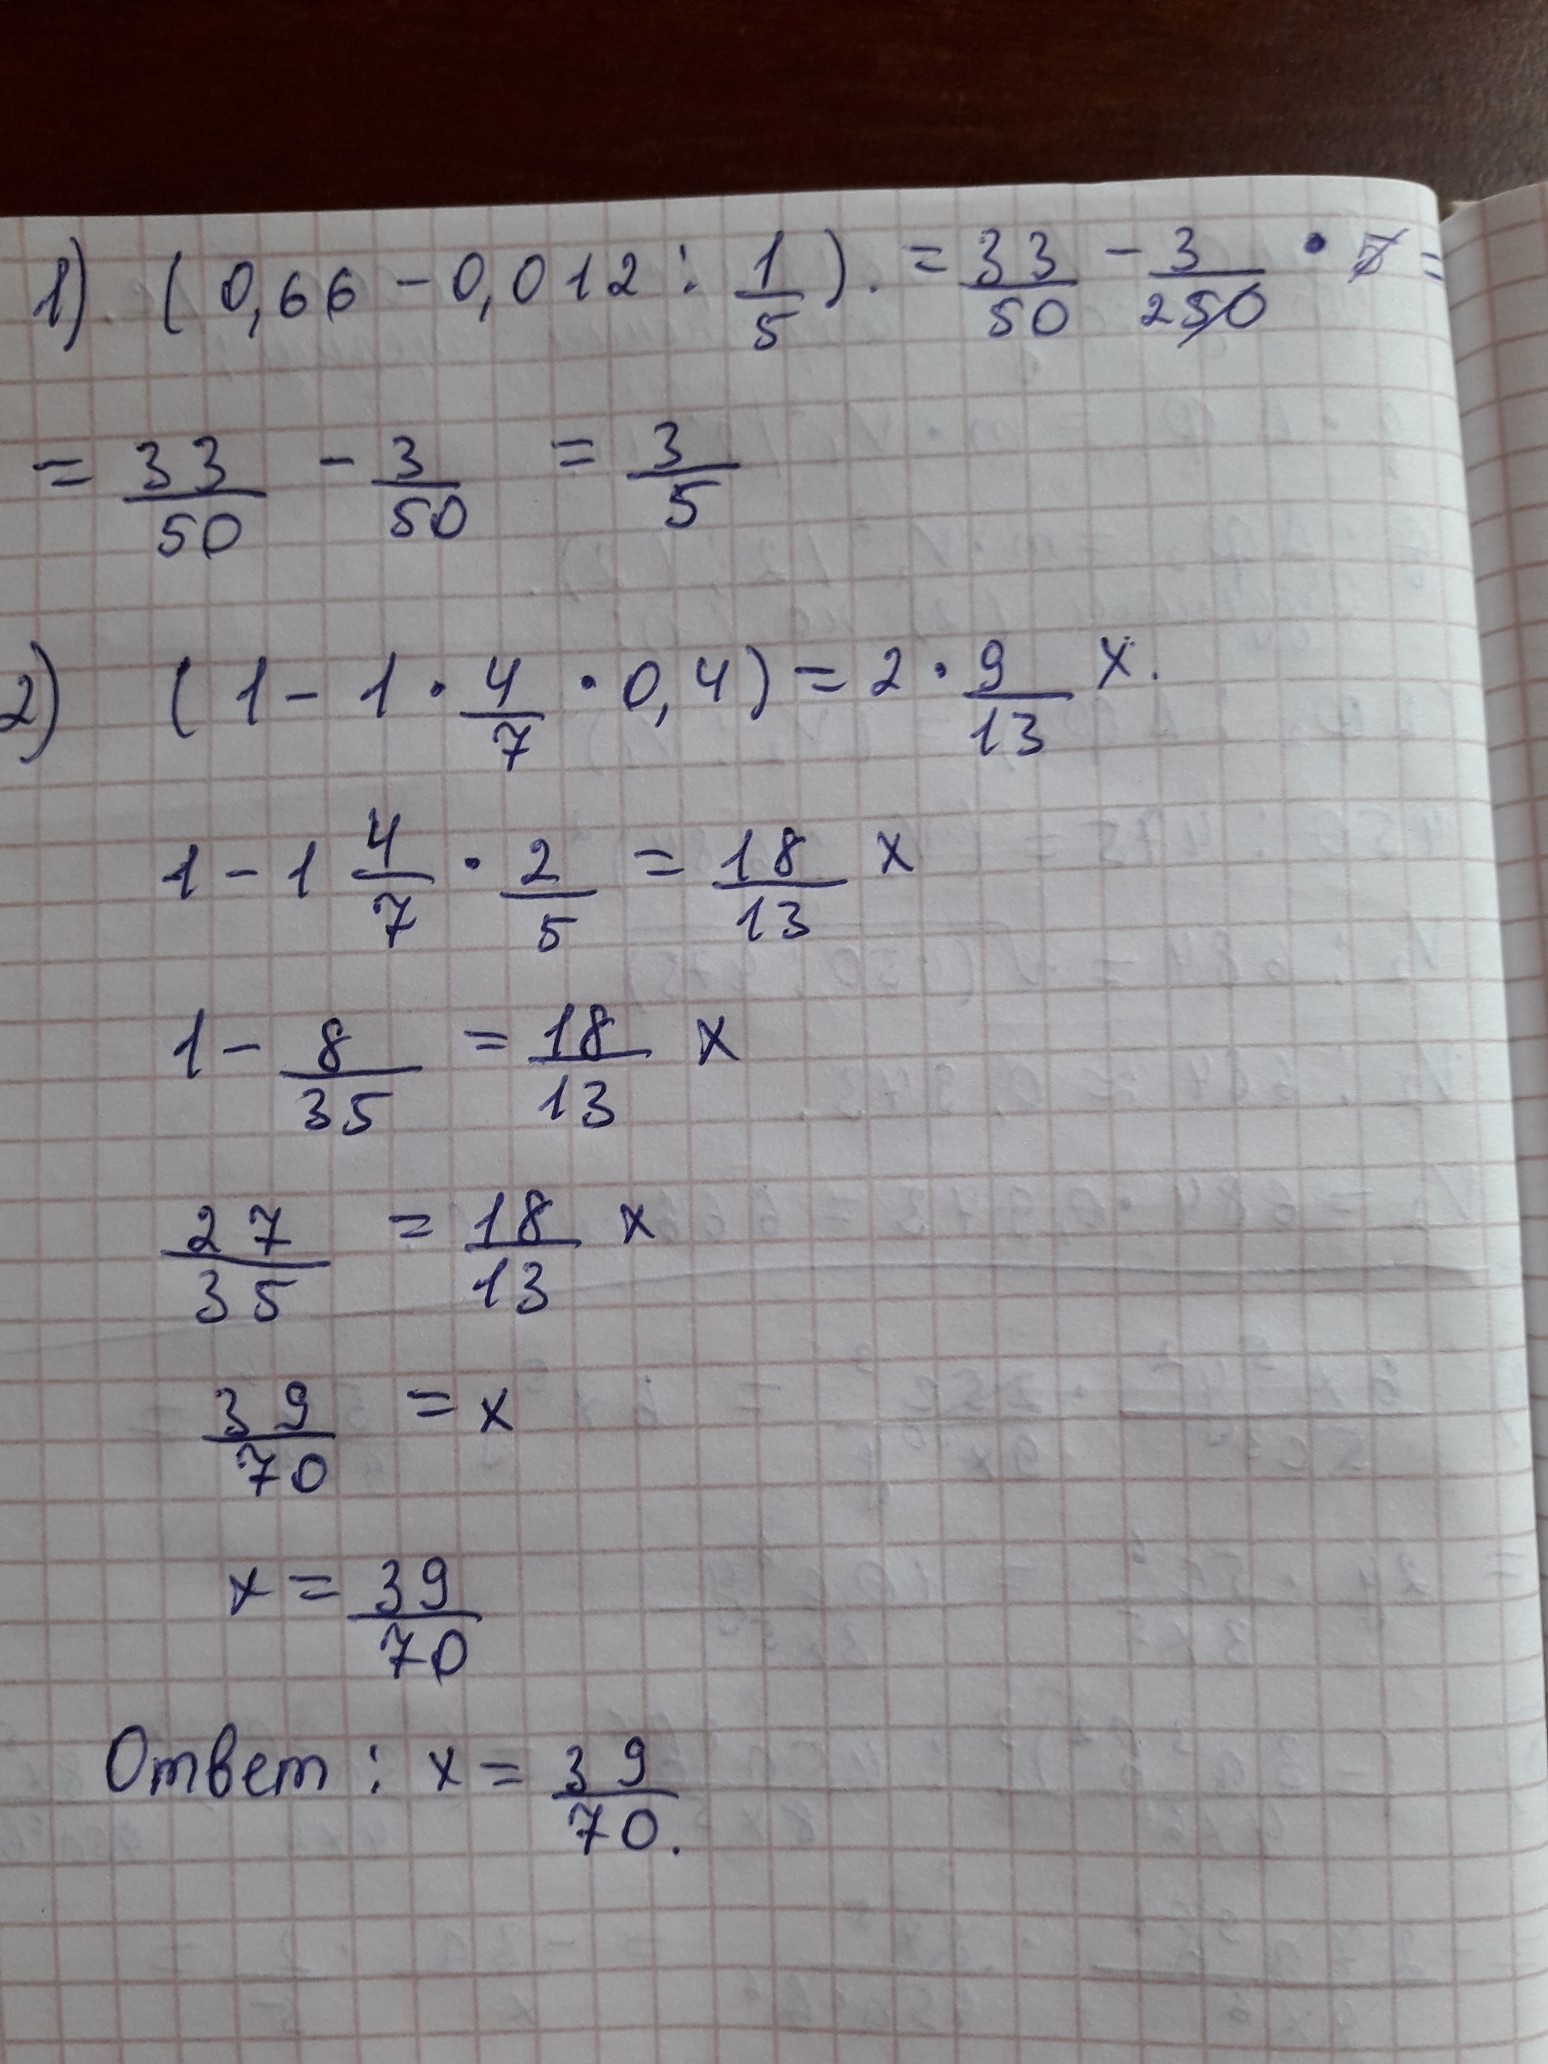 1). (0,66 - 0,012 : 1/5). = 33/50 - 3/250 · 5 =
= 33/50 - 3/50 = 3/5
2) (1 - 1 · 4/7 · 0,4) = 2 · 9/13 x.
1 - 1 4/7 · 2/5 = 18/13 x
1 - 8/35 = 18/13 x
27/35 = 18/13 x
39/70 = x
x = 39/70
Ответ : x = 39/70.